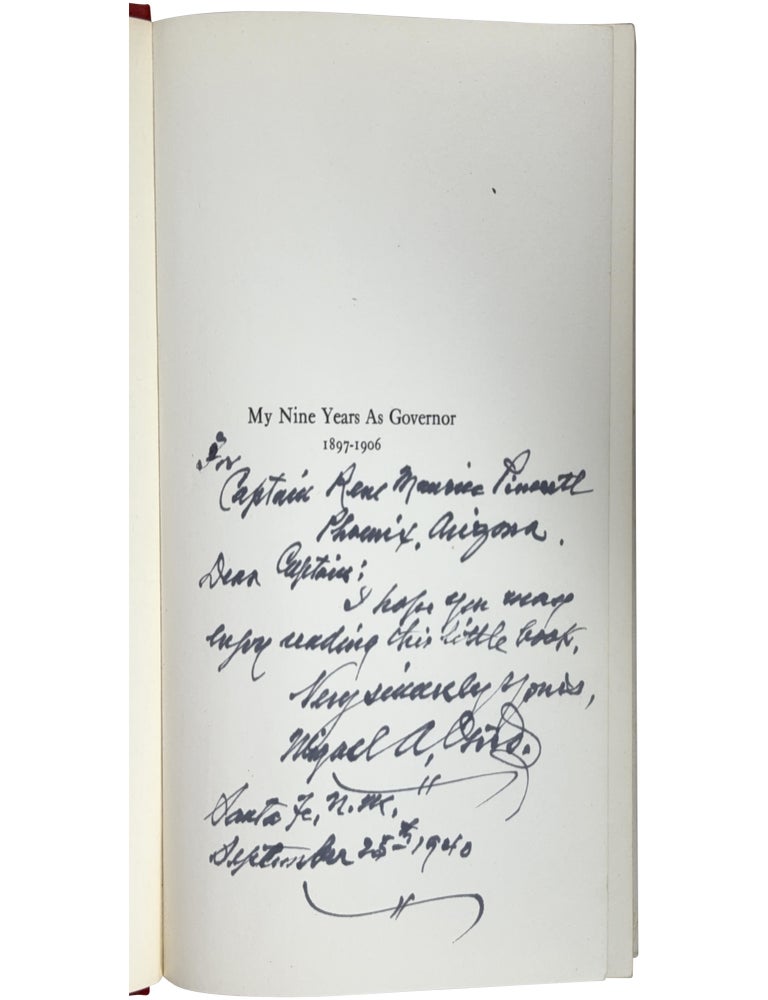 My Nine Years As Governor
1897-1906
For
Captain Rene Maurice
Phoenix, Arizona.
Dear Captain:
I hope you may
enjoy reading this little book.
Very sincerely yours,
Miguel A. Otero.
Santa Fe, N.M.
September 25th 1940